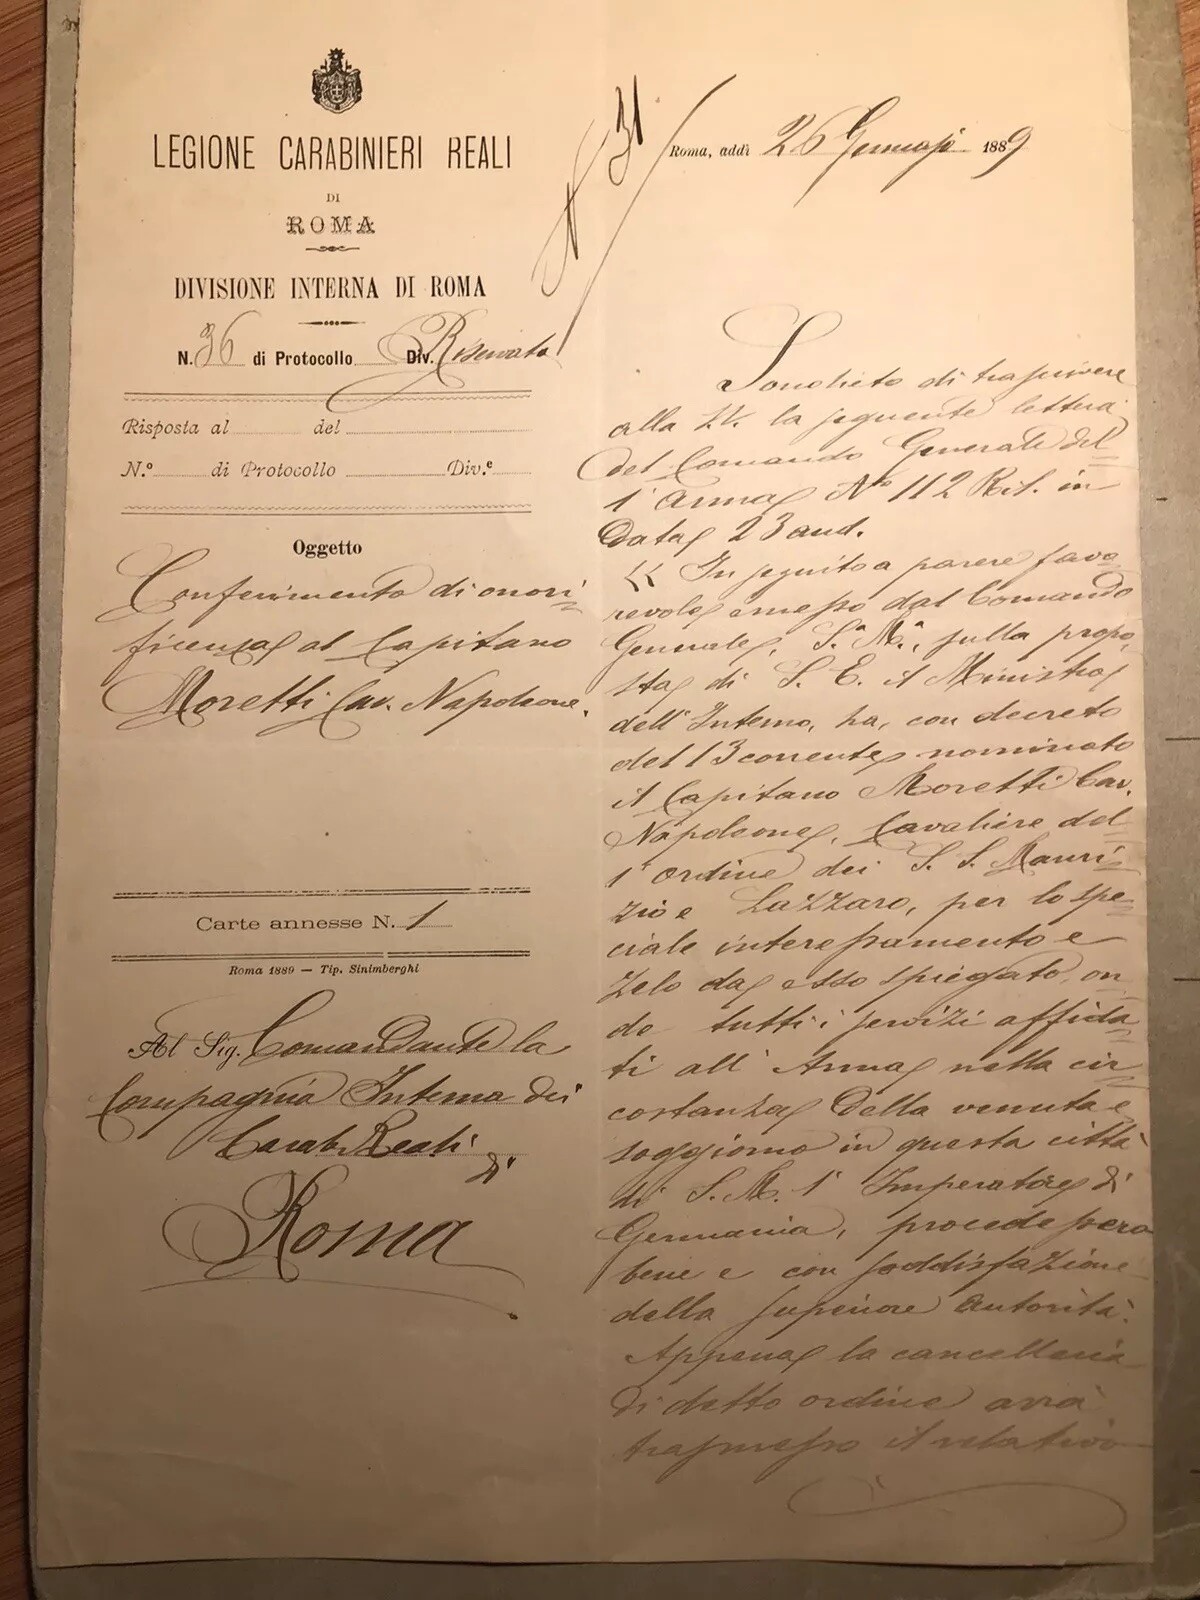 LEGIONE CARABINIERI REALI
DI
ROMA
DIVISIONE INTERNA DI ROMA
N. 36 di Protocollo Div. Riservata
Risposta al del
N.º di Protocollo Div.e
Oggetto
Conferimento di onori-
ficenza al Capitano
Moretti Cav. Napoleone.
Carte annesse N. 1
Roma 1889 — Tip. Sinimberghi
Al Sig. Comandante la
Compagnia Interna dei
Carab. Reali
di
Roma
N 31
Roma, addì 26 Gennajo 1889
Sonolieto di trascrivere
alla S.V. la seguente lettera
del Comando Generale del
l'Arma No 112 Ris. in
Data 23 and.
« In seguito a parere favo-
revole emesso dal Comando
Generale, S. M., sulla propo-
sta di S. E. il Ministro
dell'Interno, ha, con decreto
del 13 corrente nominato
il Capitano Moretti Cav.
Napoleone, Cavaliere del-
l'ordine dei S. S. Mauri-
zio e Lazzaro, per lo spe-
ciale interessamento e
zelo da esso spiegato, on-
de tutti i servizi affida-
ti all'Arma nella cir-
costanza della venuta e
soggiorno in questa città
di S. M. l'Imperatore di
Germania, procedessero
bene e con soddisfazione
della superiore autorità.
Appena la cancelleria
di detto ordine avrà
trasmesso il relativo